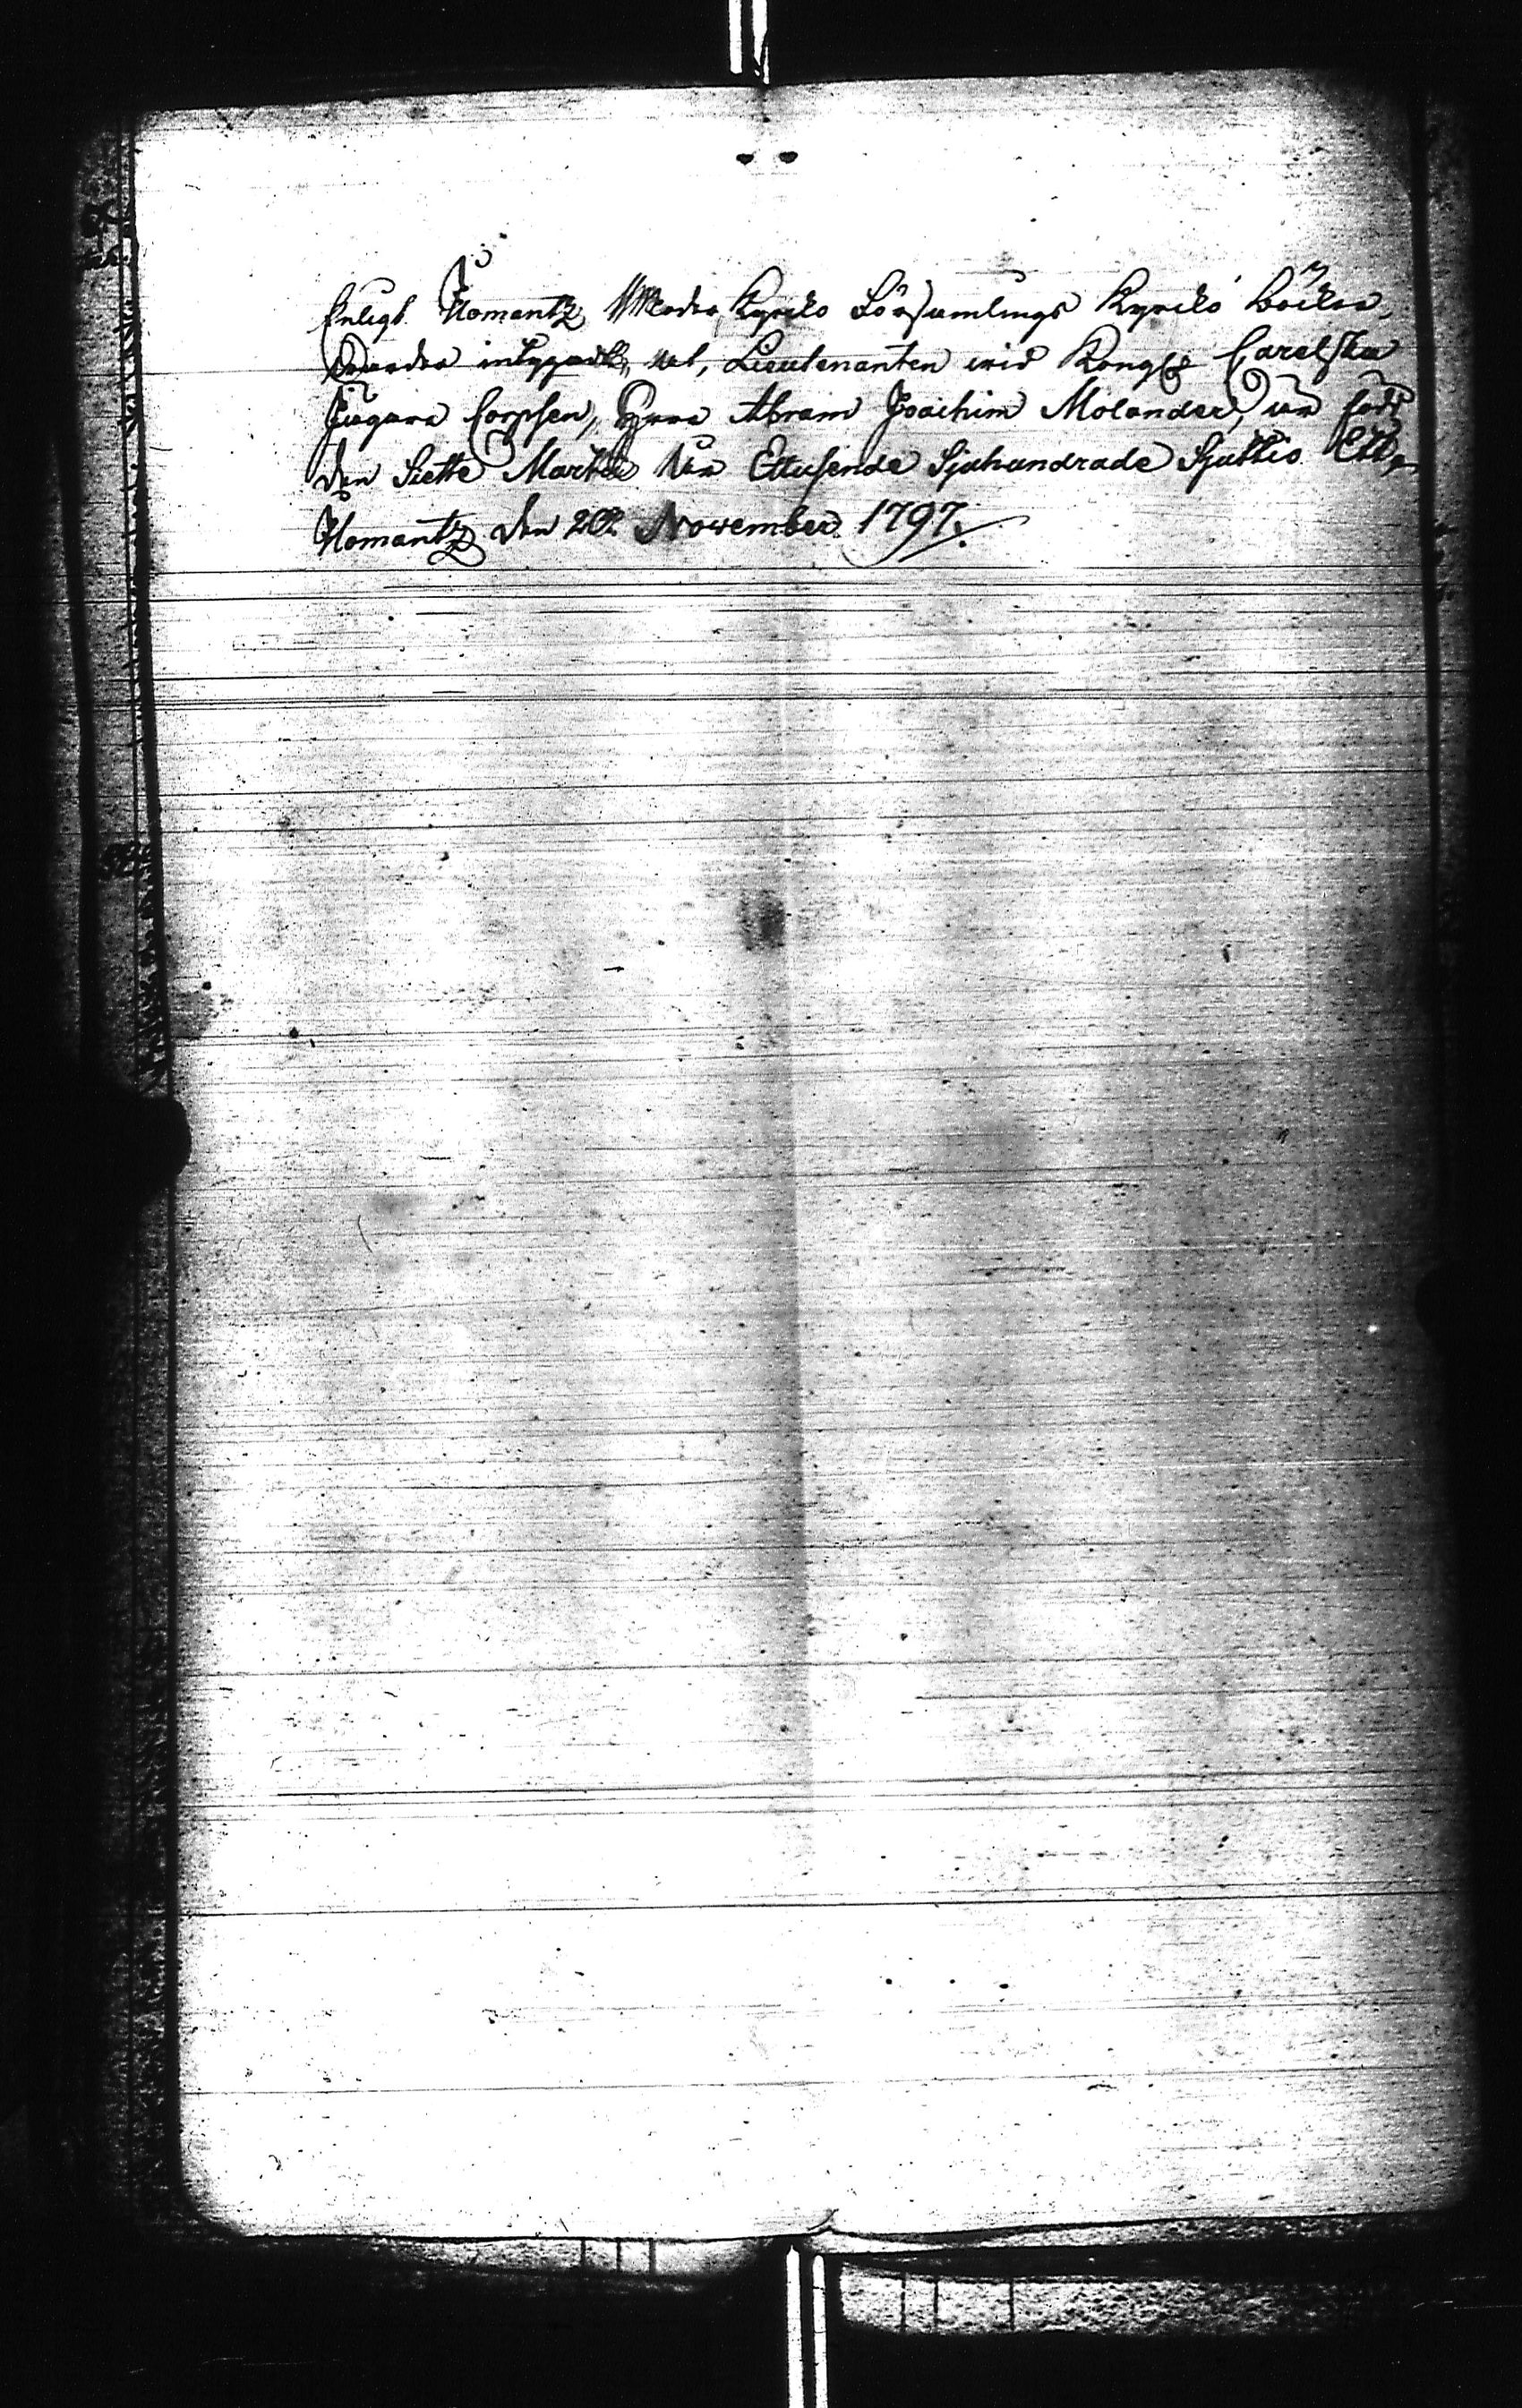 Enligt Ilomantz Moder Kyrcko Församlings Kyrcko böcker,
warder intygadt, at, Lieutenanten wid Kongl. Carelska
Jägare Corpsen, Herr Abram Joachim Molander, är född
den Siette Martii År Ettusende Sjuhundrade Sjuttio Ett,
Ilomantz den November 1797.